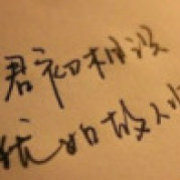 君初相识
犹如故人归